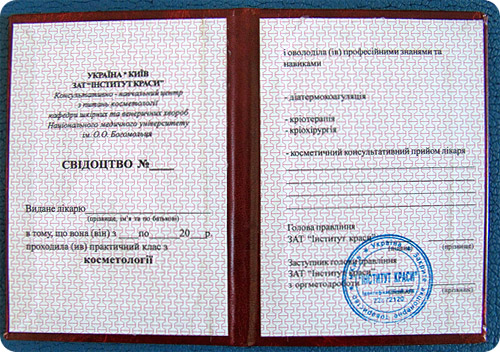 УКРАЇНА * КИЇВ
ЗАТ "ІНСТИТУТ КРАСИ"
Консультативно - навчальний центр
з питань косметології
кафедри шкірних та венеричних хвороб
Національного медичного університету
ім. О.О. Богомольця
СВІДОЦТВО №____
Видане лікарю
(прізвище, ім'я та по батькові)
в тому, що вона (він) з ____ по ______20___р.
проходила (ив) практичний клас з
косметології
і оволоділа (ів) професійними знаннями та
навиками
- діатермокоагуляція
- кріотерапія
- кріохірургія
- косметичний консультативний прийом лікаря
Голова правління
ЗАТ "Інститут краси"
(прізвище)
Заступник голови правління
ЗАТ "Інститут краси"
з оргметодроботи
(прізвище)
Україна * Закрите акціонерне товариство
"ІНСТИТУТ КРАСИ"